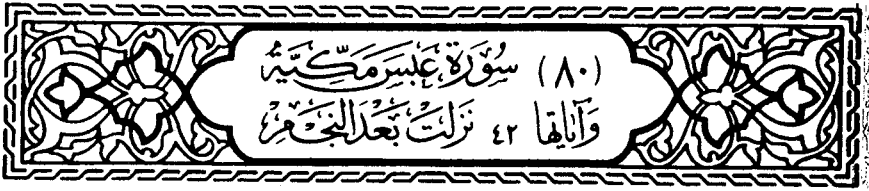 (٨٠) سُورَةُ عَبَسَ مَكِّيَّةٌ
وَآيَاتُهَا ٤٢ نَزَلَتْ بَعْدَ النَّجْمِ